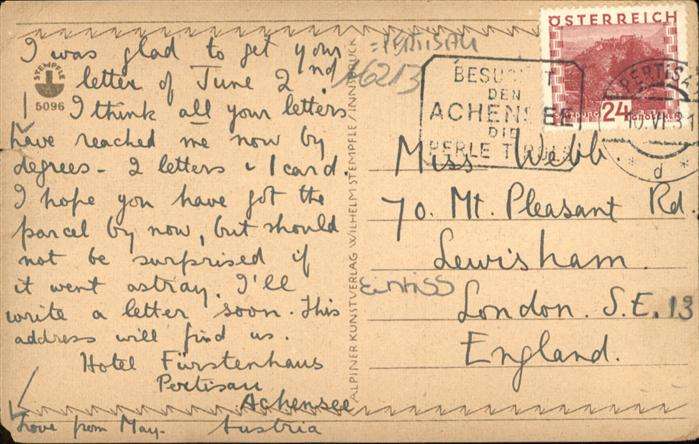 I was glad to get your
letter of June 2nd
! I think all your letters
have reached me now by
degrees - 2 letters & 1 card.
I hope you have got the
parcel by now, but should
not be surprised if
it went astray. I'll
write a letter soon. This
address will find us.
Hotel Fürstenhaus
Pertisau
Achensee
Austria
Love from May.
STEMPFLE
5096
ALPINER KUNSTVERLAG WILHELM STEMPFLE / INNSBRUCK
=PERTISAU
A6213
ÖSTERREICH
24
BESUCHT
DEN
ACHENSEE
DIE
PERLE TIROLS
PERTISAU
10.VI.31
d
Miss Webb
70. Mt. Pleasant Rd.
Lewisham.
London. S.E. 13
England.